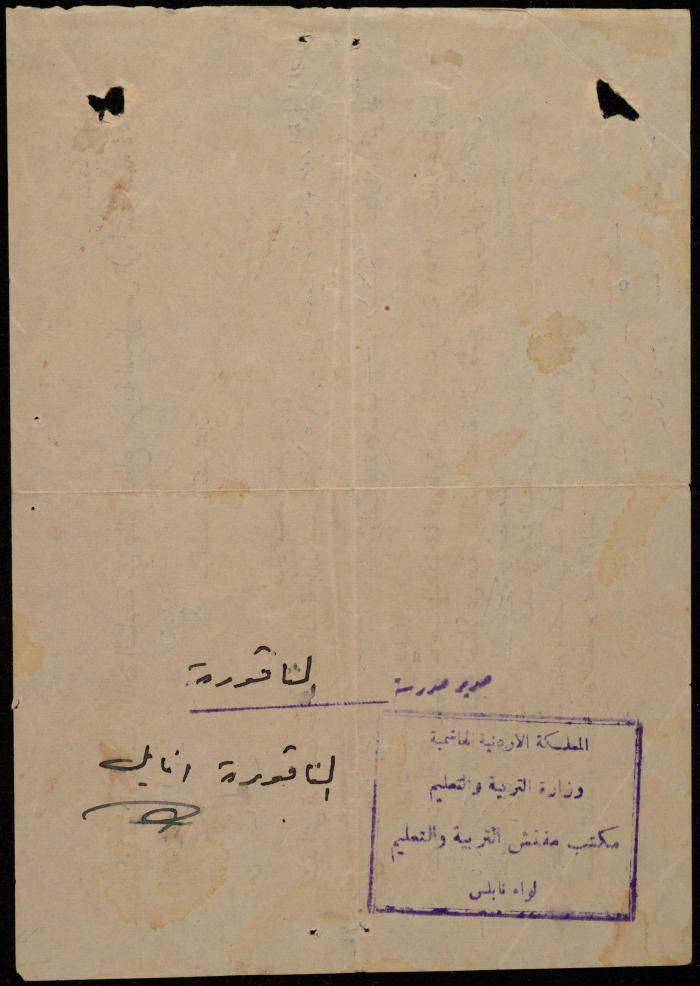 مدير مدرسة الناقورة
المملكة الأردنية الهاشمية
وزارة التربية والتعليم
مكتب مفتش التربية والتعليم
لواء نابلس
الناقورة